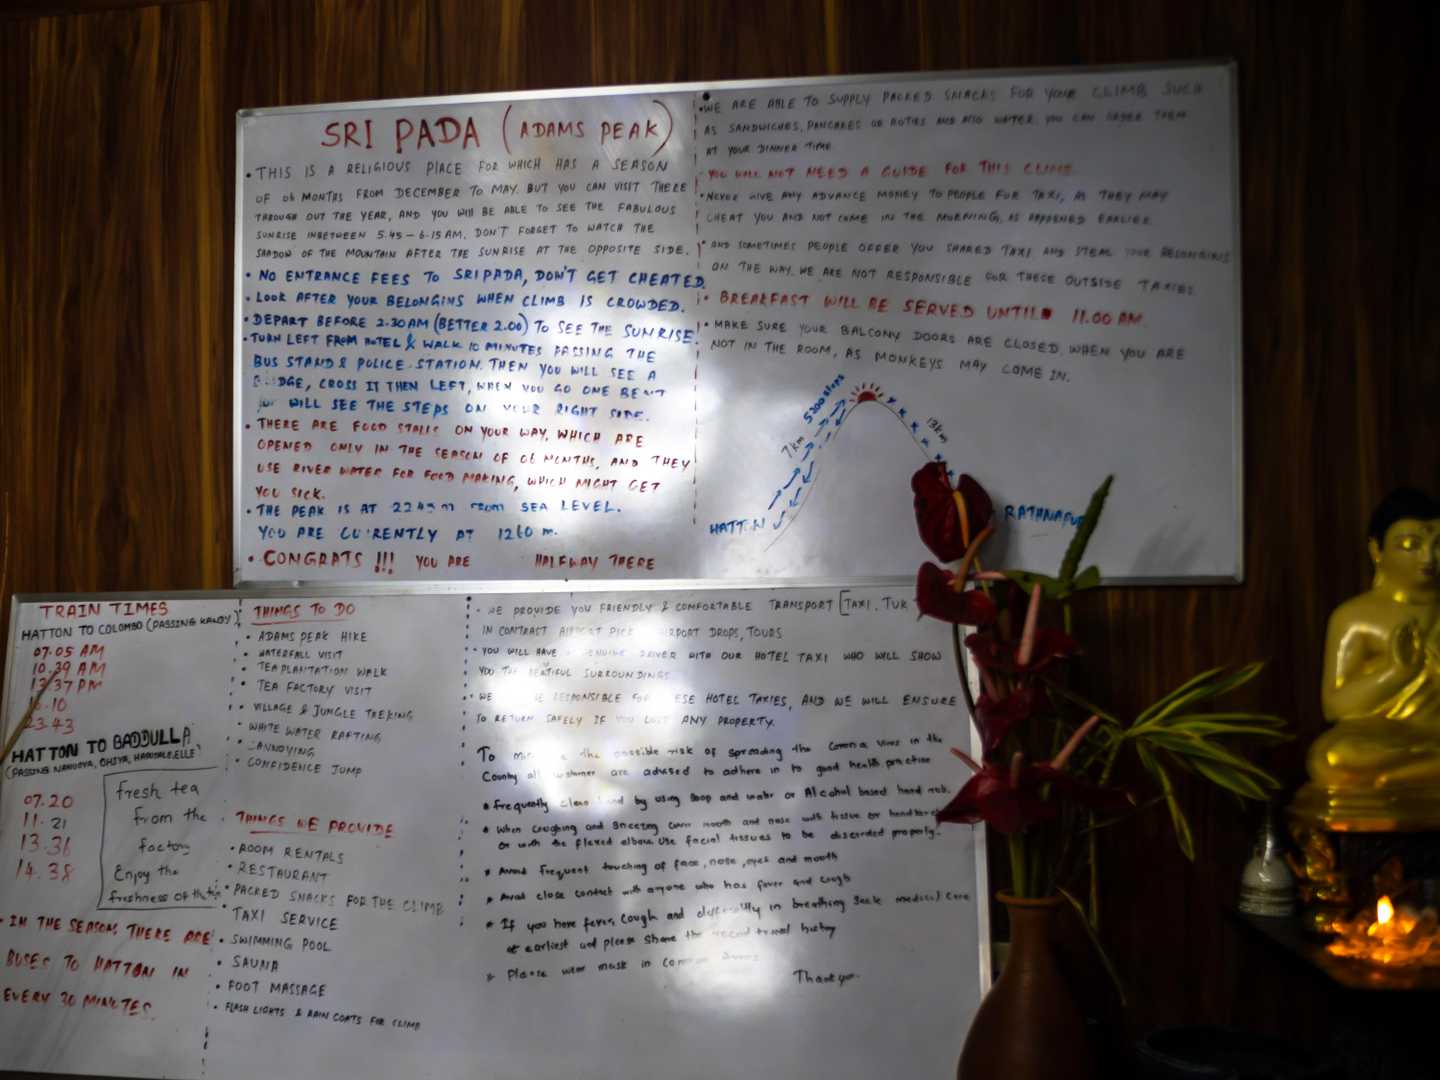 SRI PADA (ADAMS PEAK)
• THIS IS A RELIGIOUS PLACE FOR WHICH HAS A SEASON
OF 06 MONTHS FROM DECEMBER TO MAY. BUT YOU CAN VISIT THERE
THROUGH OUT THE YEAR, AND YOU WILL BE ABLE TO SEE THE FABULOUS
SUNRISE INBETWEEN 5.45 – 6.15 AM. DON'T FORGET TO WATCH THE
SHADOW OF THE MOUNTAIN AFTER THE SUNRISE AT THE OPPOSITE SIDE.
• NO ENTRANCE FEES TO SRIPADA, DON'T GET CHEATED.
• LOOK AFTER YOUR BELONGINS WHEN CLIMB IS CROWDED.
• DEPART BEFORE 2.30 AM (BETTER 2.00) TO SEE THE SUNRISE.
• TURN LEFT FROM HOTEL & WALK 10 MINUTES PASSING THE
BUS STAND & POLICE STATION. THEN YOU WILL SEE A
CROSS IT THEN LEFT, WHEN YOU GO ONE
WILL SEE THE STEPS ON YOUR RIGHT SIDE.
• THERE ARE FOOD STALLS ON YOUR WAY, WHICH ARE
OPENED ONLY IN THE SEASON OF 06 MONTHS, AND THEY
USE RIVER WATER FOR FOOD MAKING, WHICH MIGHT GET
YOU SICK.
• THE PEAK IS AT FROM SEA LEVEL.
YOU ARE AT 1260 m.
• CONGRATS !!! YOU ARE HALFWAY THERE
• WE ARE ABLE TO SUPPLY PACKED SNACKS FOR YOUR CLIMB SUCH
AS SANDWICHES, PANCAKES OR ROTIES AND ALSO WATER. YOU CAN ORDER THEM
AT YOUR DINNER TIME.
• YOU WILL NOT NEED A GUIDE FOR THIS CLIMB.
• NEVER GIVE ANY ADVANCE MONEY TO PEOPLE FOR TAXI, AS THEY MAY
CHEAT YOU AND NOT COME IN THE MORNING, AS HAPPENED EARLIER.
• AND SOMETIMES PEOPLE OFFER YOU SHARED TAXI AND STEAL YOUR BELONGINS
ON THE WAY. WE ARE NOT RESPONSIBLE FOR THESE OUTSIDE TAXIES
• BREAKFAST WILL BE SERVED UNTIL 11.00 AM.
• MAKE SURE YOUR BALCONY DOORS ARE CLOSED, WHEN YOU ARE
NOT IN THE ROOM, AS MONKEYS MAY COME IN.
5200 steps
7km
13km
HATTON
TRAIN TIMES
HATTON TO COLOMBO (PASSING KANDY)
07.05 AM
10.39 AM
13.37 PM
23.43
HATTON TO BADDULLA
07.20
11.21
13.36
14.38
fresh tea
from the
factory
Enjoy the
freshness of the
• IN THE SEASON THERE ARE
BUSES TO HATTON IN
EVERY 30 MINUTES.
THINGS TO DO
• ADAMS PEAK HIKE
• WATERFALL VISIT
• TEA PLANTATION WALK
• TEA FACTORY VISIT
• VILLAGE & JUNGLE TREKING
• WHITE WATER RAFTING
• CANNOYING
• CONFIDENCE JUMP
THINGS WE PROVIDE
• ROOM RENTALS
• RESTAURANT
• PACKED SNACKS FOR THE CLIMB
• TAXI SERVICE
• SWIMMING POOL
• SAUNA
• FOOT MASSAGE
• FLASH LIGHTS & RAIN COATS FOR CLIMB
• WE PROVIDE YOU FRIENDLY & COMFORTABLE TRANSPORT [TAXI, TUK
IN CONTRAST AIRPORT PICK AIRPORT DROPS, TOURS
• YOU WILL HAVE GENUINE DRIVER WITH OUR HOTEL TAXI WHO WILL SHOW
YOU THE SURROUNDINGS
• WE RESPONSIBLE FOR HOTEL TAXIES, AND WE WILL ENSURE
TO RETURN SAFELY IF YOU LOST ANY PROPERTY.
To the possible risk of spreading the Corona Virus in the
Country all are advised to adhere in to good health practice
* Frequently by using Soap and water or Alcohol based hand rub.
* When Coughing and Sneezing Cover mouth and nose with tissue or
or with the flexed elbow. Use facial tissues to be discarded properly.
* Avoid frequent touching of face, nose, eyes and mouth
* Avoid close contact with anyone who has fever and Cough
* If you have fever, Cough and difficulty in breathing Seek medical Care
at earliest and please Share the travel history
* Please wear mask in
Thank you